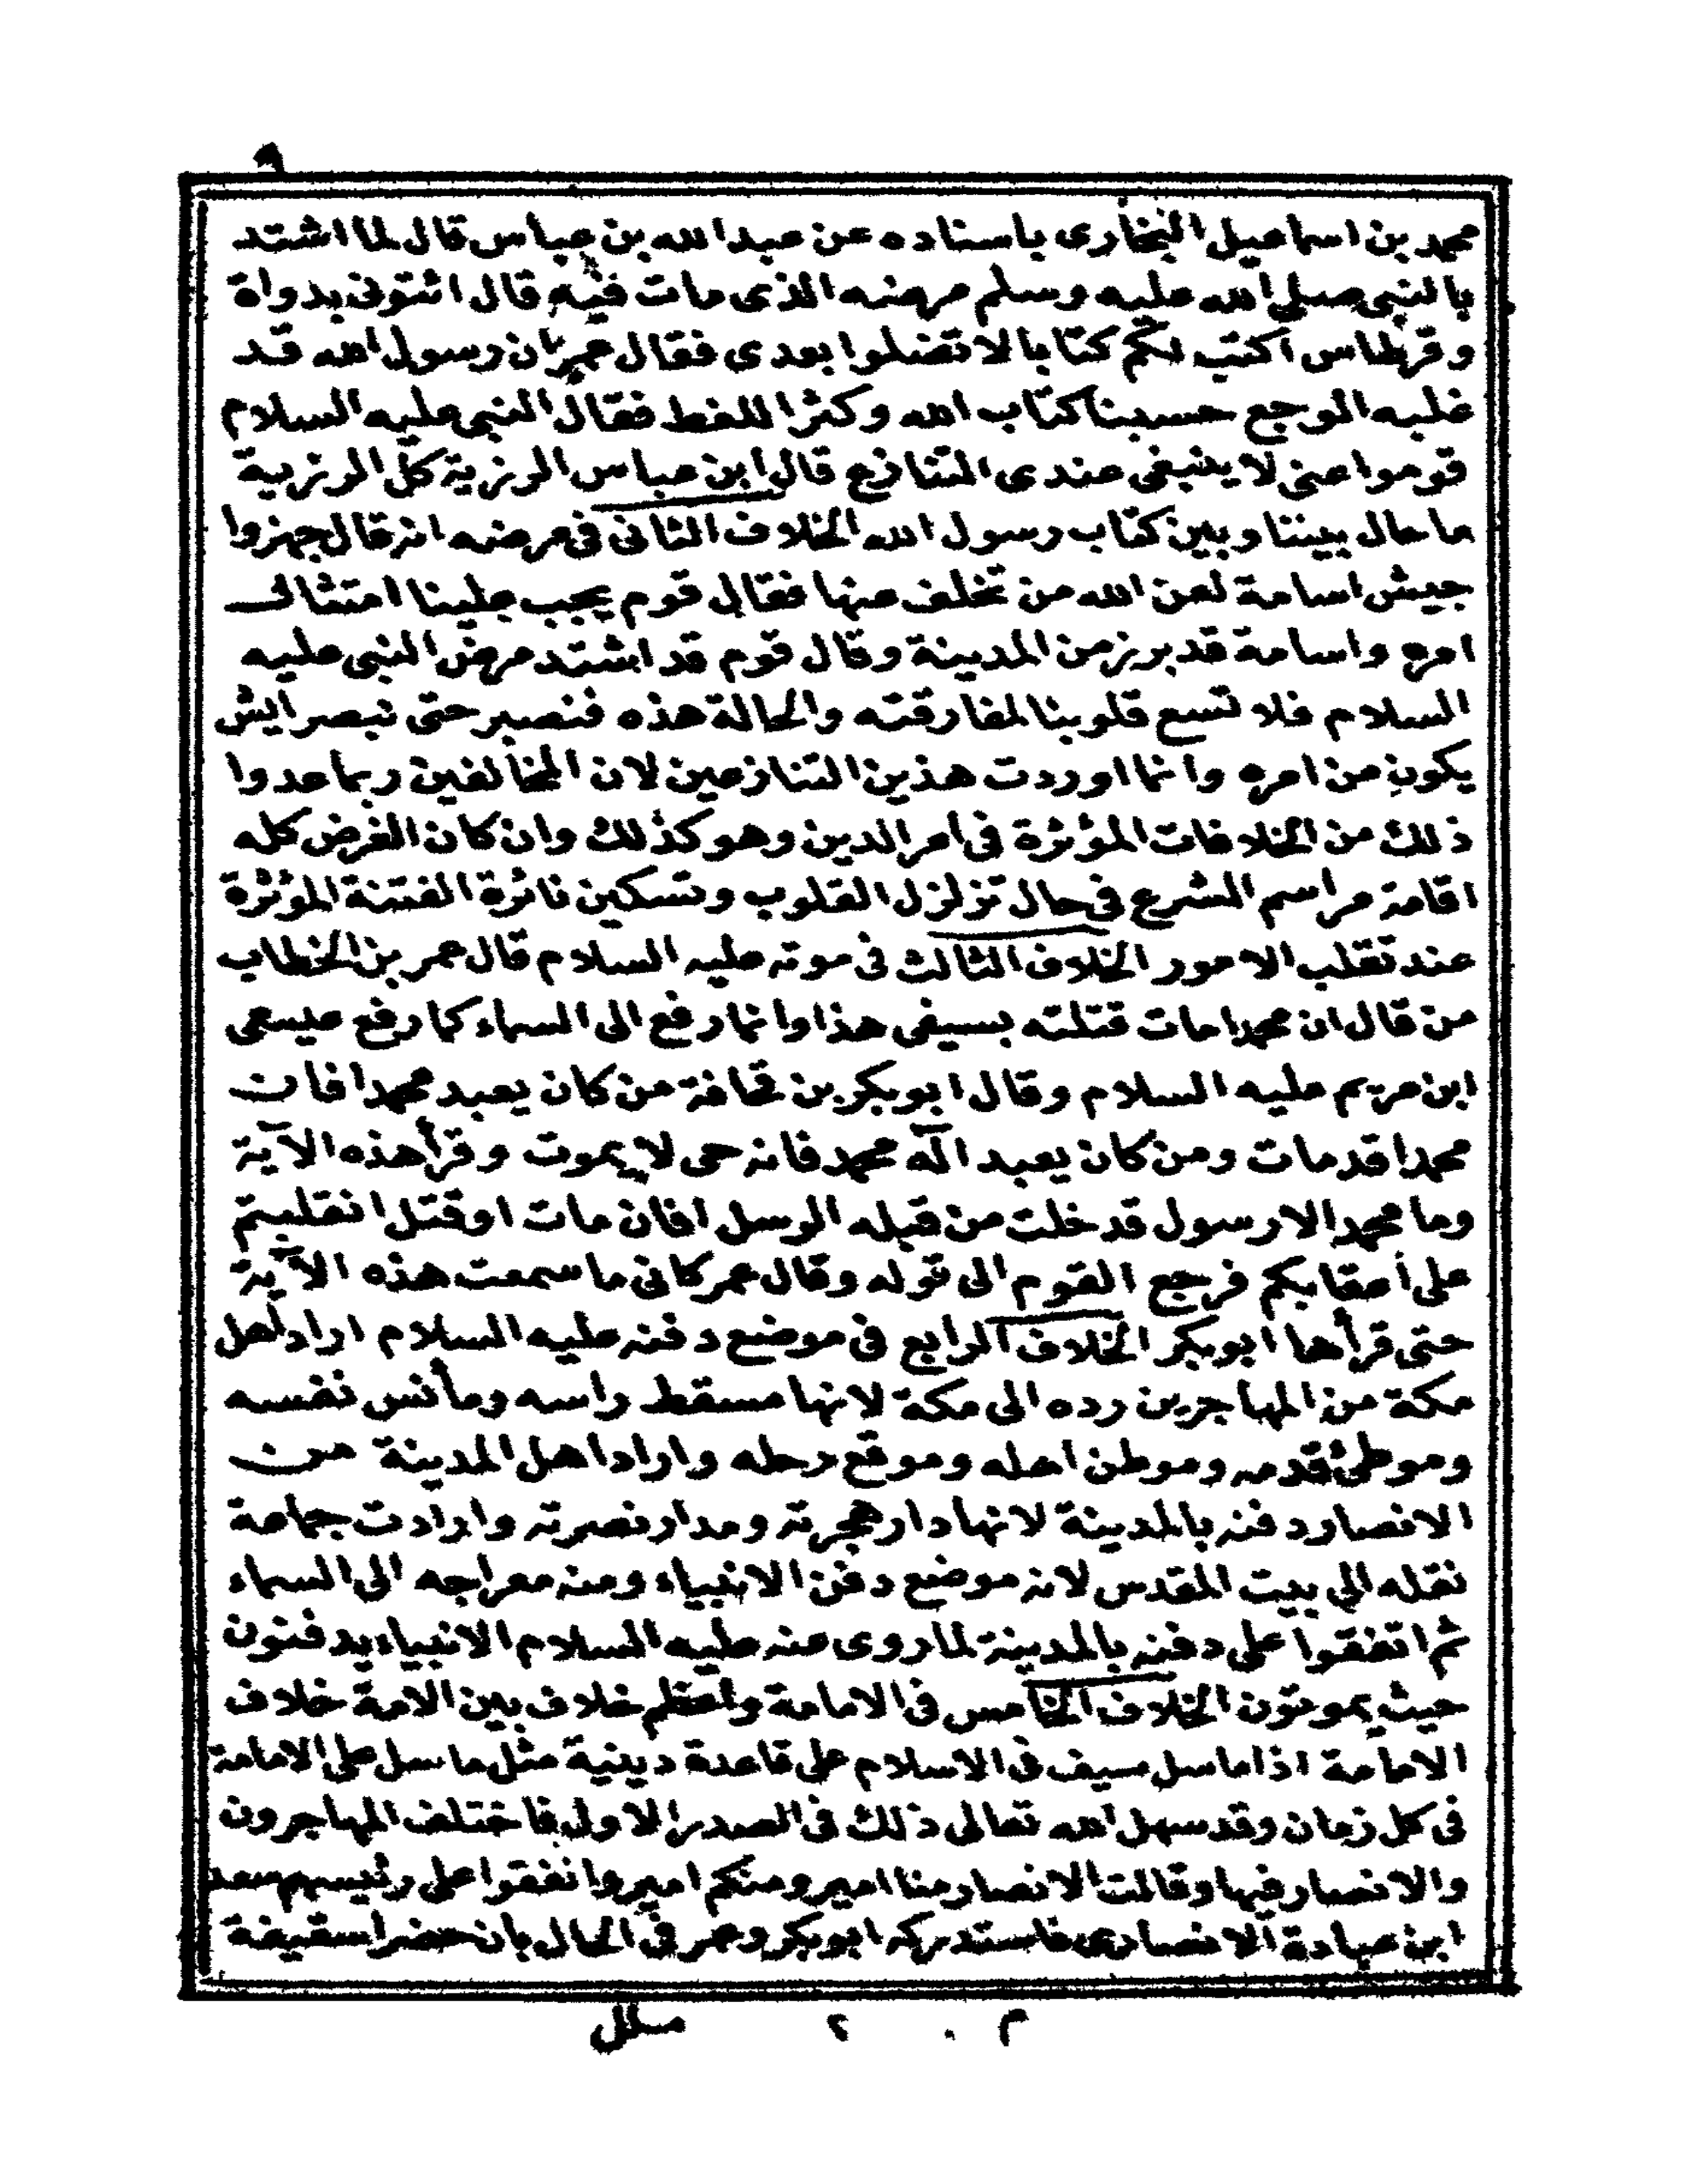 ٩
محمد بن اسماعيل البخارى باسناده عن عبدالله بن عباس قال لما اشتد
بالنبى صلى الله عليه وسلم مرضه الذى مات فيه قال ائتونى بدواة
وقرطاس اكتب لكم كتابا لا تضلوا بعدى فقال عمر ان رسول الله قد
غلبه الوجع حسبنا كتاب الله وكثر اللغط فقال النبى عليه السلام
قوموا عنى لا ينبغى عندى التنازع قال ابن عباس الرزية كل الرزية
ما حال بيننا وبين كتاب رسول الله الخلاف الثانى فى مرضه انه قال جهزوا
جيش اسامة لعن الله من تخلف عنها فقال قوم يجب علينا امتثال
امره واسامة قد برز من المدينة وقال قوم قد اشتد مرض النبى عليه
السلام فلا تسع قلوبنا لمفارقته والحالة هذه فنصبر حتى نبصر ايش
يكون من امره وانما اوردت هذين التنازعين لان المخالفين ربما عدوا
ذلك من الخلافات المؤثرة فى امر الدين وهو كذلك وان كان الغرض كله
اقامة مراسم الشرع فى حال تزلزل القلوب وتسكين نائرة الفتنة المؤثرة
عند تقلب الامور الخلاف الثالث فى موته عليه السلام قال عمر بن الخطاب
من قال ان محمدا مات قتلته بسيفى هذا وانما رفع الى السماء كما رفع عيسى
ابن مريم عليه السلام وقال ابو بكر بن قحافة من كان يعبد محمدا فان
محمدا قد مات ومن كان يعبد اله محمد فانه حى لا يموت وقرأ هذه الآية
وما محمد الا رسول قد خلت من قبله الرسل افان مات او قتل انقلبتم
على أعقابكم فرجع القوم الى قوله وقال عمر كانى ما سمعت هذه الآية
حتى قرأها ابو بكر الخلاف الرابع فى موضع دفنه عليه السلام اراد أهل
مكة من المهاجرين رده الى مكة لانها مسقط راسه ومأنس نفسه
وموطئ قدمه وموطن اهله وموقع رحله واراد اهل المدينة من
الانصار دفنه بالمدينة لانها دار هجرته ومدار نصرته وارادت جماعة
نقله الى بيت المقدس لانه موضع دفن الانبياء ومنه معراجه الى السماء
ثم اتفقوا على دفنه بالمدينة لما روى عنه عليه السلام الانبياء يدفنون
حيث يموتون الخلاف الخامس فى الامامة واعظم خلاف بين الامة خلاف
الامامة اذا ما سل سيف فى الاسلام على قاعدة دينية مثل ما سل على الامامة
فى كل زمان وقد سهل الله تعالى ذلك فى الصدر الاول فاختلف المهاجرون
والانصار فيها وقالت الانصار منا امير ومنكم امير واتفقوا على رئيسهم سعد
ابن عبادة الانصارى فاستدركه ابو بكر وعمر فى الحال بان حضرا سقيفة
م ٢ ملل